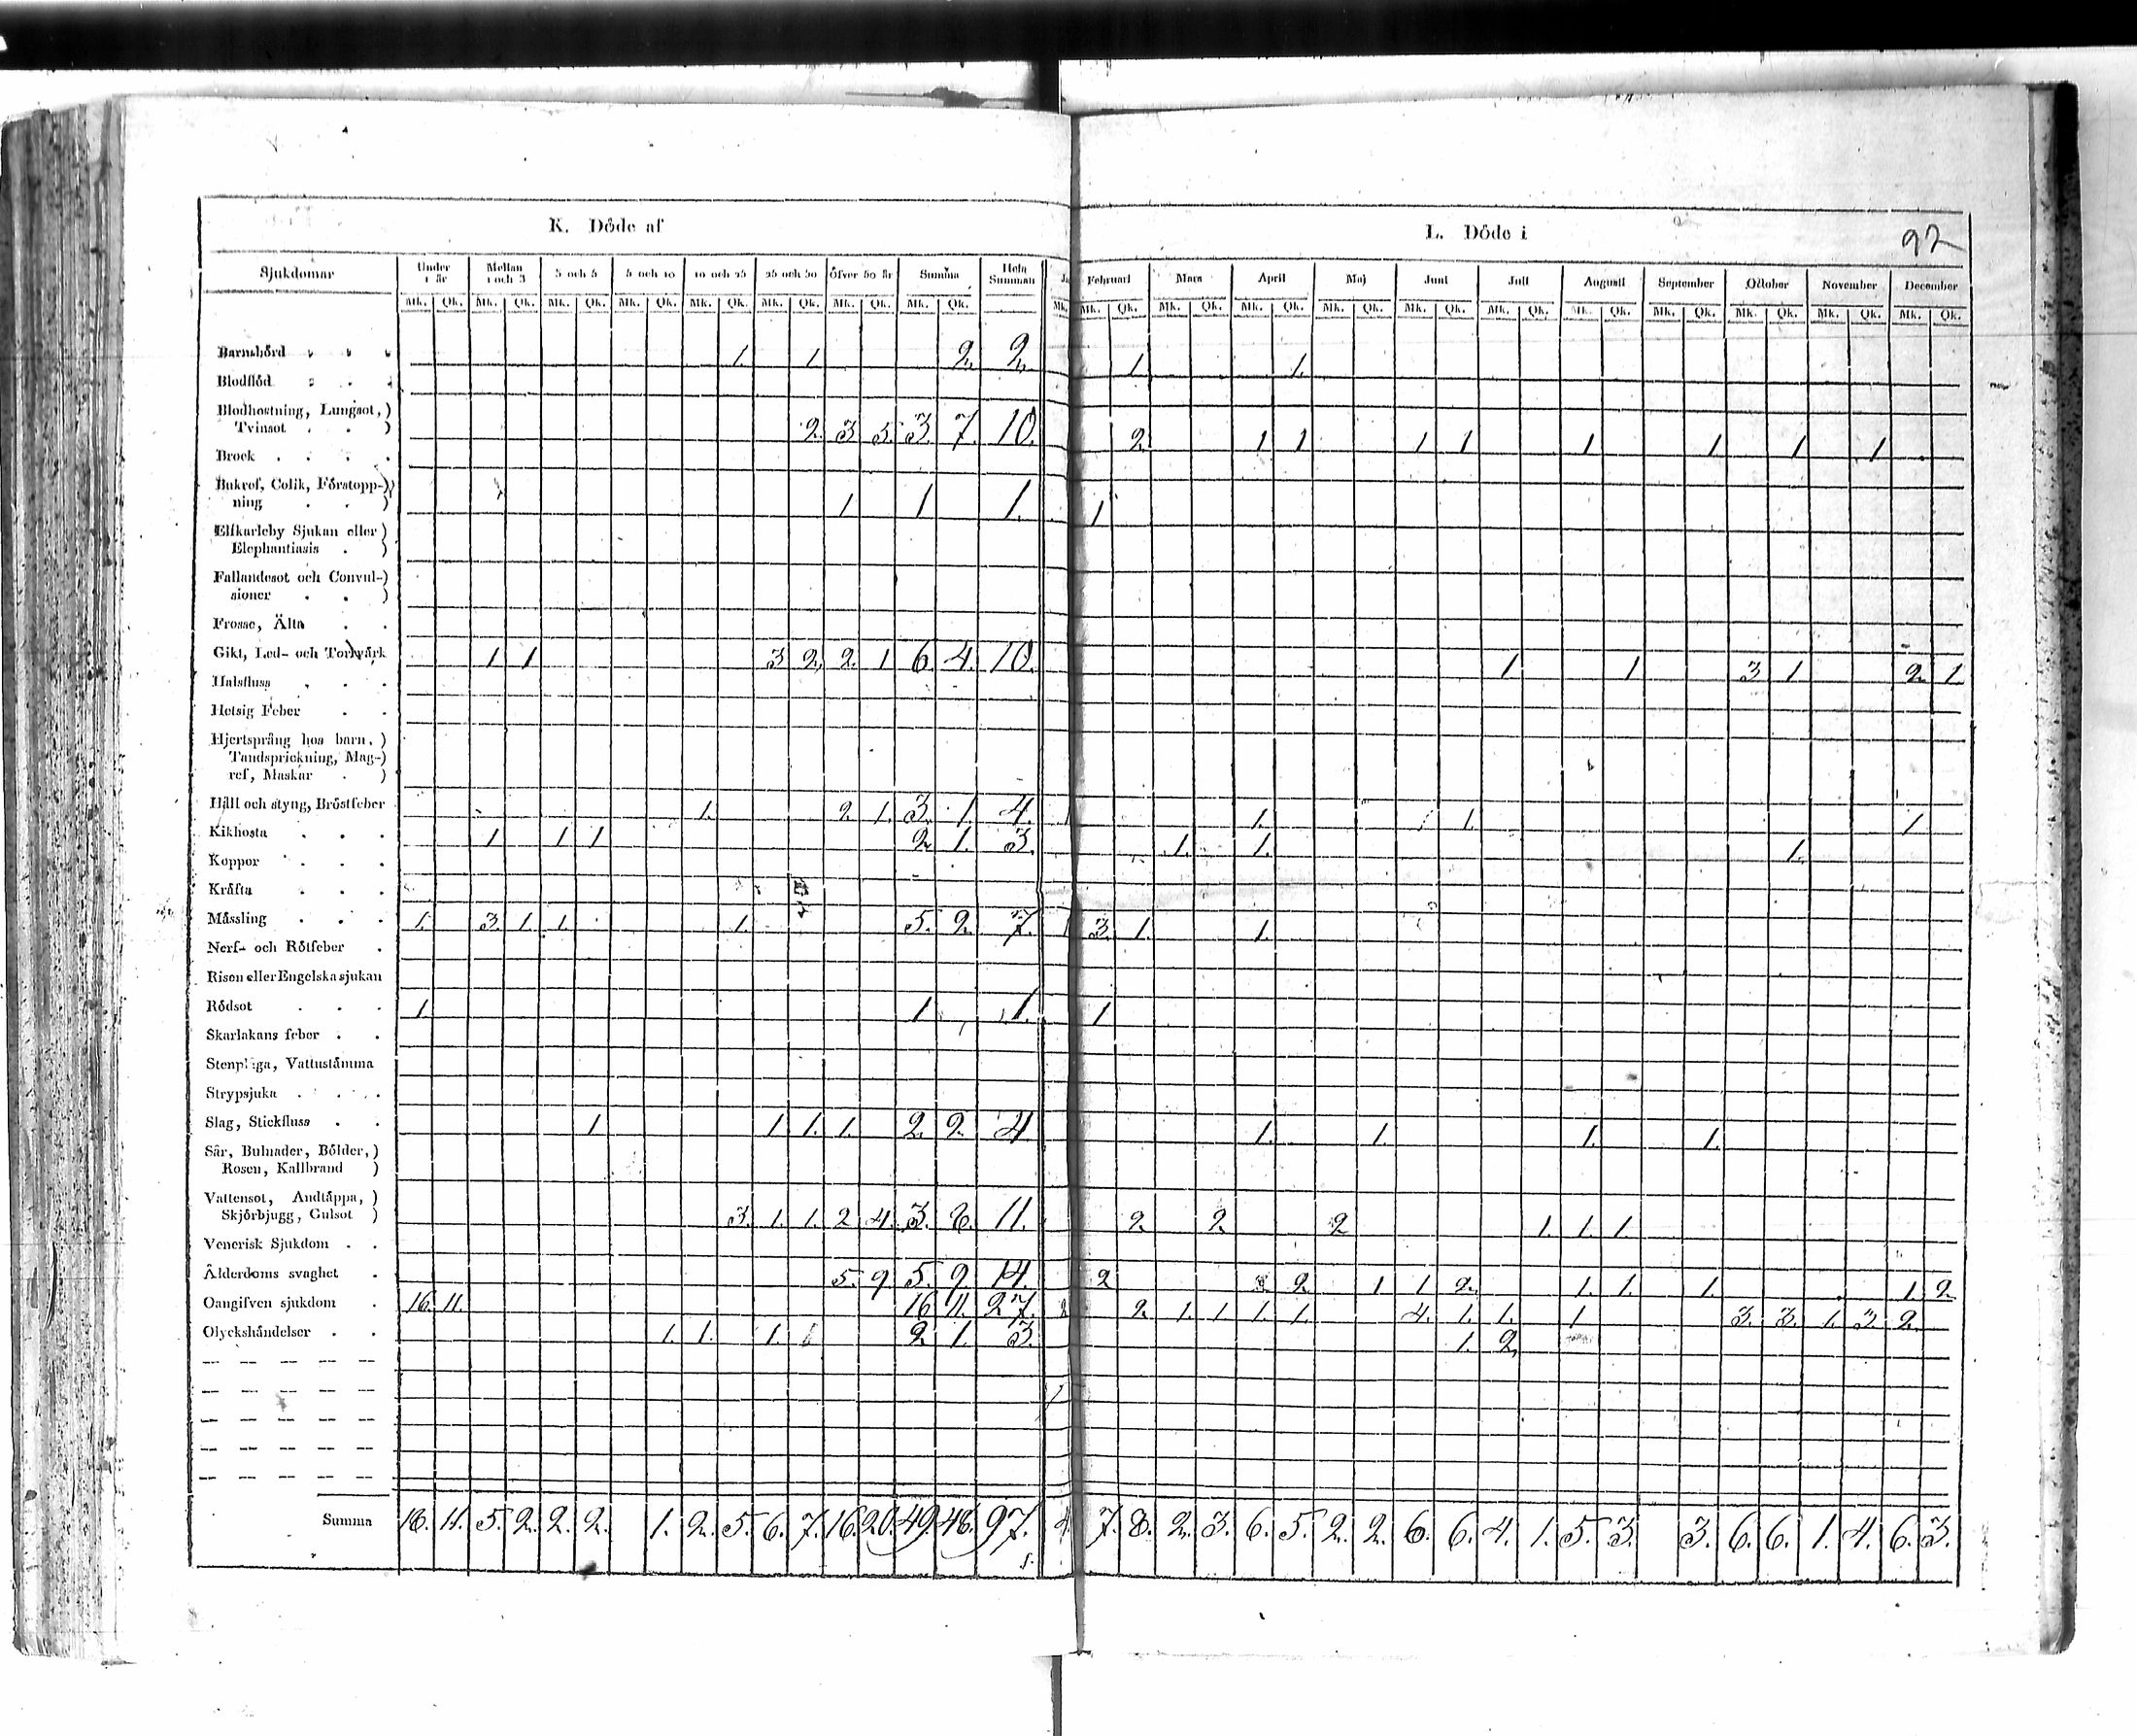 K. Döde af
L. Döde i
97
Sjukdomar Under 1 år Mellan 1 och 3 3 och 5 5 och 10 10 och 25 25 och 50 öfver 50 år Summa Hela Summan
Februari Mars April Maj Juni Juli Augusti September October November December
Mk. Qk. Mk. Qk. Mk. Qk. Mk. Qk. Mk. Qk. Mk. Qk. Mk. Qk. Mk. Qk. Mk.
Mk. Qk. Mk. Qk. Mk. Qk. Mk. Qk. Mk. Qk. Mk. Qk. Mk. Qk. Mk. Qk. Mk. Qk. Mk. Qk. Mk. Qk.
Barnsbörd 1. 1. 2. 2. 1. 1.
Blodflöd
Blodhostning, Lungsot,)
Tvinsot ) 2. 3. 5. 3. 7. 10. 2. 1 1 1 1 1 1 1 1
Brock
Bukref, Colik, Förstopp-)
ning ) 1 1 1. 1
Elfkarleby Sjukan eller)
Elephantiasis )
Fallandesot och Convul-)
sioner )
Frossa, Älta
Gikt, Led- och Torrvärk 1 1 3 2. 2. 1 6 4. 10. 1 1 3 1 2 1
Halsfluss
Hetsig Feber
Hjertsprång hos barn,)
Tandsprickning, Mag-)
ref, Maskar )
Håll och styng, Bröstfeber 1. 2 1. 3. 1. 4. 1 1. 1. 1
Kikhosta 1 1 1 2 1. 3. 1. 1. 1.
Koppor
Kräfta
Mässling 1. 3. 1. 1. 1. 5. 2. 7. 1 3. 1. 1.
Nerf- och Rötfeber
Risen eller Engelska sjukan
Rödsot 1. 1 1. 1
Skarlakans feber
Stenplåga, Vattustämma
Strypsjuka
Slag, Stickfluss 1 1 1. 1. 2. 2. 4 1. 1. 1. 1.
Sår, Bulnader, Bölder,)
Rosen, Kallbrand )
Vattensot, Andtäppa, )
Skjörbjugg, Gulsot ) 3. 1. 1. 2 4. 3. 8. 11. 2 2. 2 1. 1. 1.
Venerisk Sjukdom
Ålderdoms svaghet 5. 9 5. 9 14. 2 2. 1 1 2. 1. 1. 1. 1. 2.
Oangifven sjukdom 16. 11. 16 11. 27. 2 2. 1. 1. 1. 1. 4. 1. 1. 1 3. 3. 1. 3. 2.
Olyckshändelser 1. 1. 1. 2. 1. 3. 1. 2.
Summa 18. 11. 5. 2. 2. 2. 1. 2. 5. 6. 7. 16. 20. 49. 48. 97. 4 7. 8. 2. 3. 6. 5. 2. 2. 6. 6. 4. 1. 5. 3. 3. 6. 6. 1. 4. 6. 3.